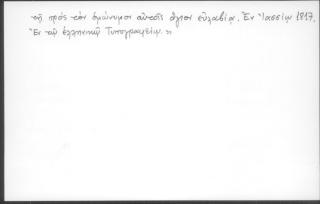 τῇ πρὸς τὸν ὁμώνυμον αὐτοῖς ἅγιον εὐλαβίᾳ. Ἐν Ἰασσίῳ 1817.
Ἐν τῷ ἑλληνικῷ Τυπογραφείῳ. »